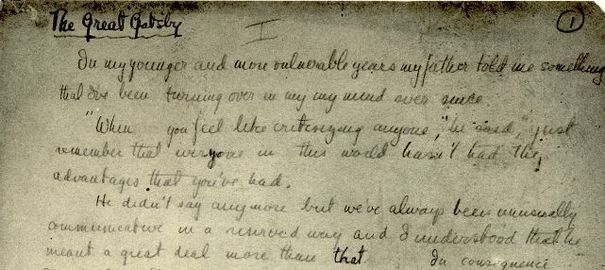 The Great Gatsby
I
1
In my younger and more vulnerable years my father told me something
that I've been turning over in my my mind ever since.
"When you feel like critisizing anyone," he said, "just
remember that everyone in this world hasn't had the
advantages that you've had.
He didn't say anymore but we've always been unusually
communicative in a reserved way and I understood that he
meant a great deal more than that In consequence